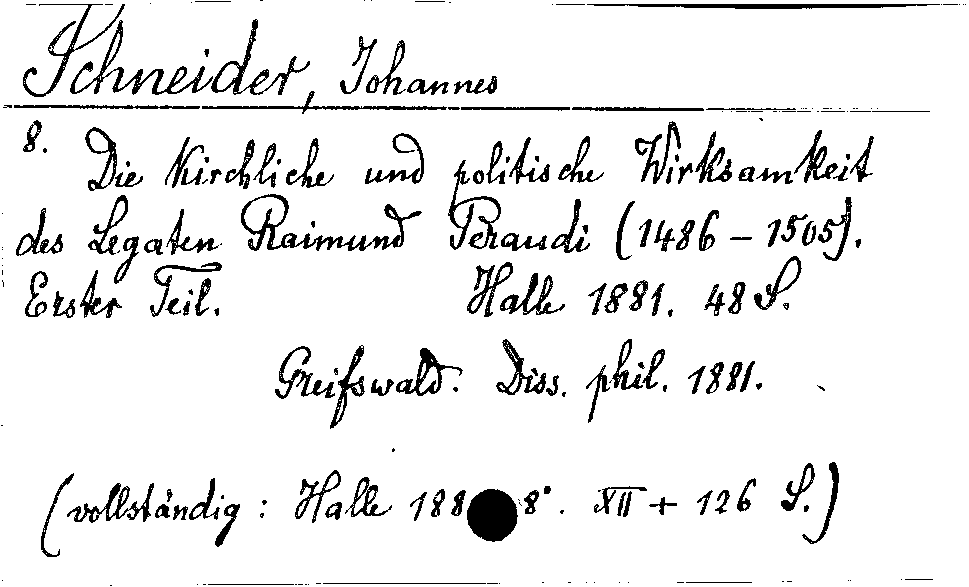 Schneider, Johannes
8. Die kirchliche und politische Wirksamkeit
des Legaten Raimund Peraudi (1486 - 1505).
Erster Teil. Halle 1881. 48 S.
Greifswald. Diss. phil. 1881.
(vollständig: Halle 188 8°. XII + 126 S.)